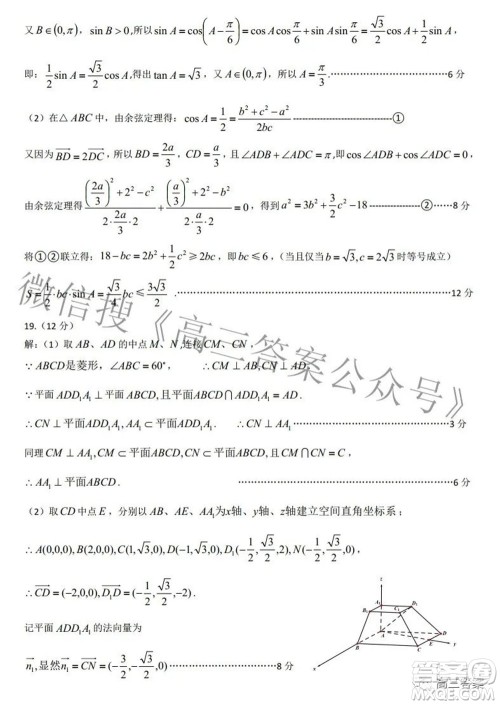 又 B∈(0,π), sin B>0,所以 sin A=cos(A−π/6)=cos A cos π/6+sin A sin π/6=√3/2 cos A+1/2 sin A,
即: 1/2 sin A=√3/2 cos A,得出 tan A=√3,又 A∈(0,π),所以 A=π/3.……………………6 分
(2)在△ABC 中，由余弦定理得: cos A=1/2=(b²+c²−a²)/2bc ------------------①
又因为 BD=2DC, 所以 BD=2a/3, CD=a/3, 且∠ADB+∠ADC=π, 即cos∠ADB+cos∠ADC=0,
由余弦定理得 ((2a/3)²+2²−c²)/(2·2a/3·2)+((a/3)²+2²−b²)/(2·a/3·2)=0, 得到 a²=3b²+3/2c²−18------------②……8 分
将①②联立得: 18−bc=2b²+1/2c²≥2bc, 即 bc≤6,(当且仅当 b=√3,c=2√3 时等号成立)
S=1/2·bc·sin A=√3/4 bc≤3√3/2 .……………………12 分
19.(12 分)
解:(1)取 AB、AD 的中点 M、N ,连接CM、CN,
∵ABCD是菱形，∠ABC=60°， ∴CN⊥AD.
∵平面ADD₁A₁⊥平面ABCD，且平面ABCD∩ADD₁A₁=AD.
∴CN⊥平面ADD₁A₁, AA₁⊂平面ADD₁A₁, ∴CN⊥AA₁……………………3 分
同理CM⊥AA₁,CM⊂平面ABCD, CN⊂平面ABCD,且CM∩CN=C,
∴AA₁⊥平面ABCD. ……………………6 分
(2)取CD中点 E，分别以 AB、AE、AA₁为x轴、y轴、z轴建立空间直角坐标系:
∴A(0,0,0),B(2,0,0),C(1,√3,0),D(−1,√3,0),D₁(−1/2,√3/2,2),N(−1/2,√3/2,0),
∴CD=(−2,0,0),D₁D=(−1/2,√3/2,−2).
记平面 ADD₁A₁的法向量为
n₁,显然n₁=CN=(−3/2,−√3/2,0)……………………8 分
微信搜《高三答案公众号》
A₁
B₁
D₁
A
B
C
D
高三答案